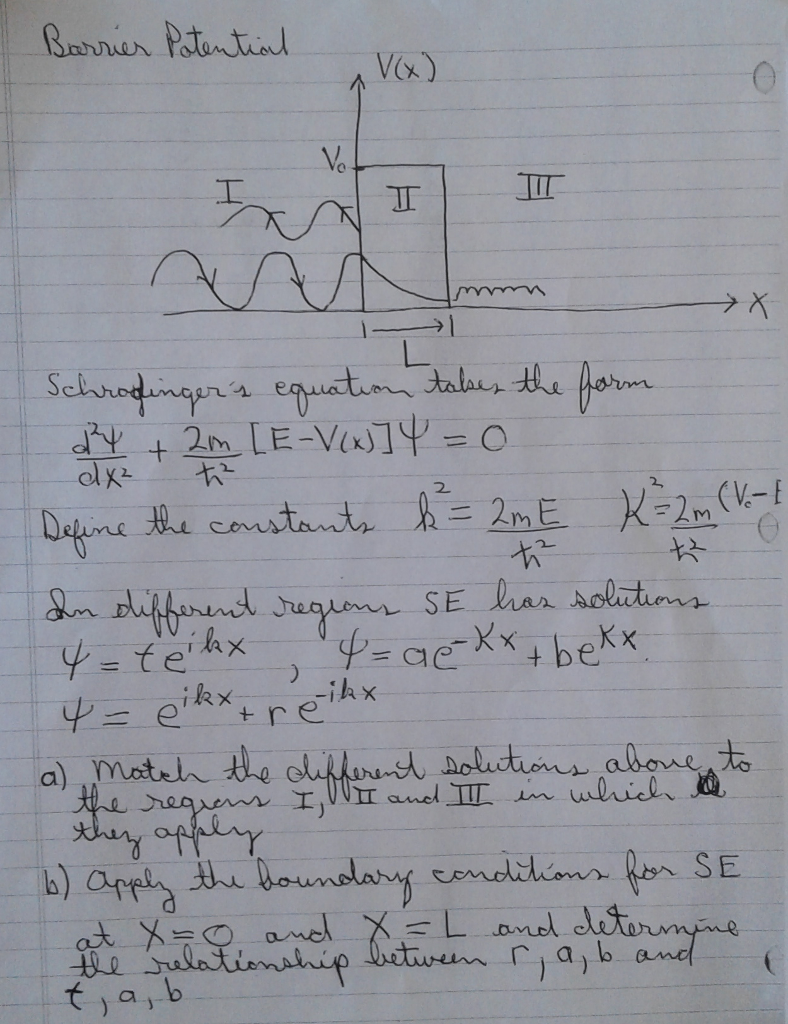 Barrier Potential
V(x)
V₀
I
II
III
X
L
Schrodinger's equation takes the form
d²Ψ/dx² + 2m/ħ² [E-V(x)]Ψ = 0
Define the constants k² = 2mE/ħ² K² = 2m/ħ² (V₀-E
In different regions SE has solutions
Ψ = te^{ikx} , Ψ = ae^{-Kx} + be^{Kx}.
Ψ = e^{ikx} + re^{-ikx}
a) Match the different solutions above to
the regions I, II and III in which
they apply
b) Apply the boundary conditions for SE
at X=0 and X=L and determine
the relationship between r, a, b and
t, a, b